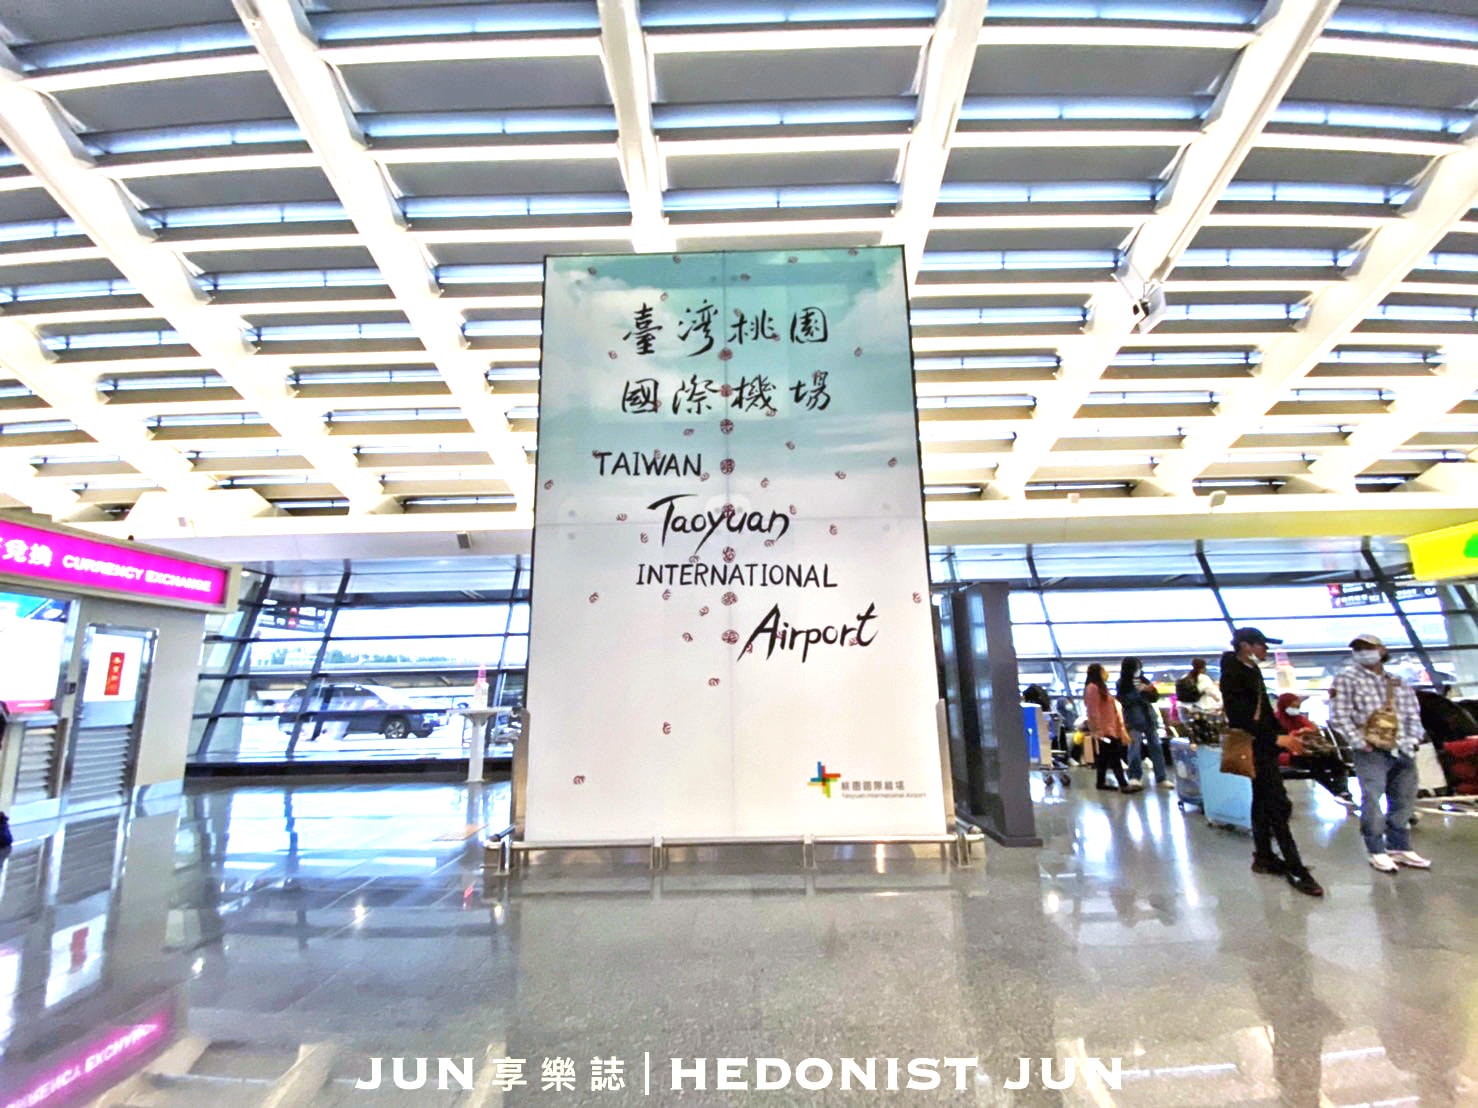 臺灣桃園
國際機場
TAIWAN
Taoyuan
INTERNATIONAL
Airport
桃園國際機場
Taoyuan International Airport
兌換 CURRENCY EXCHANGE
JUN享樂誌 | HEDONIST JUN